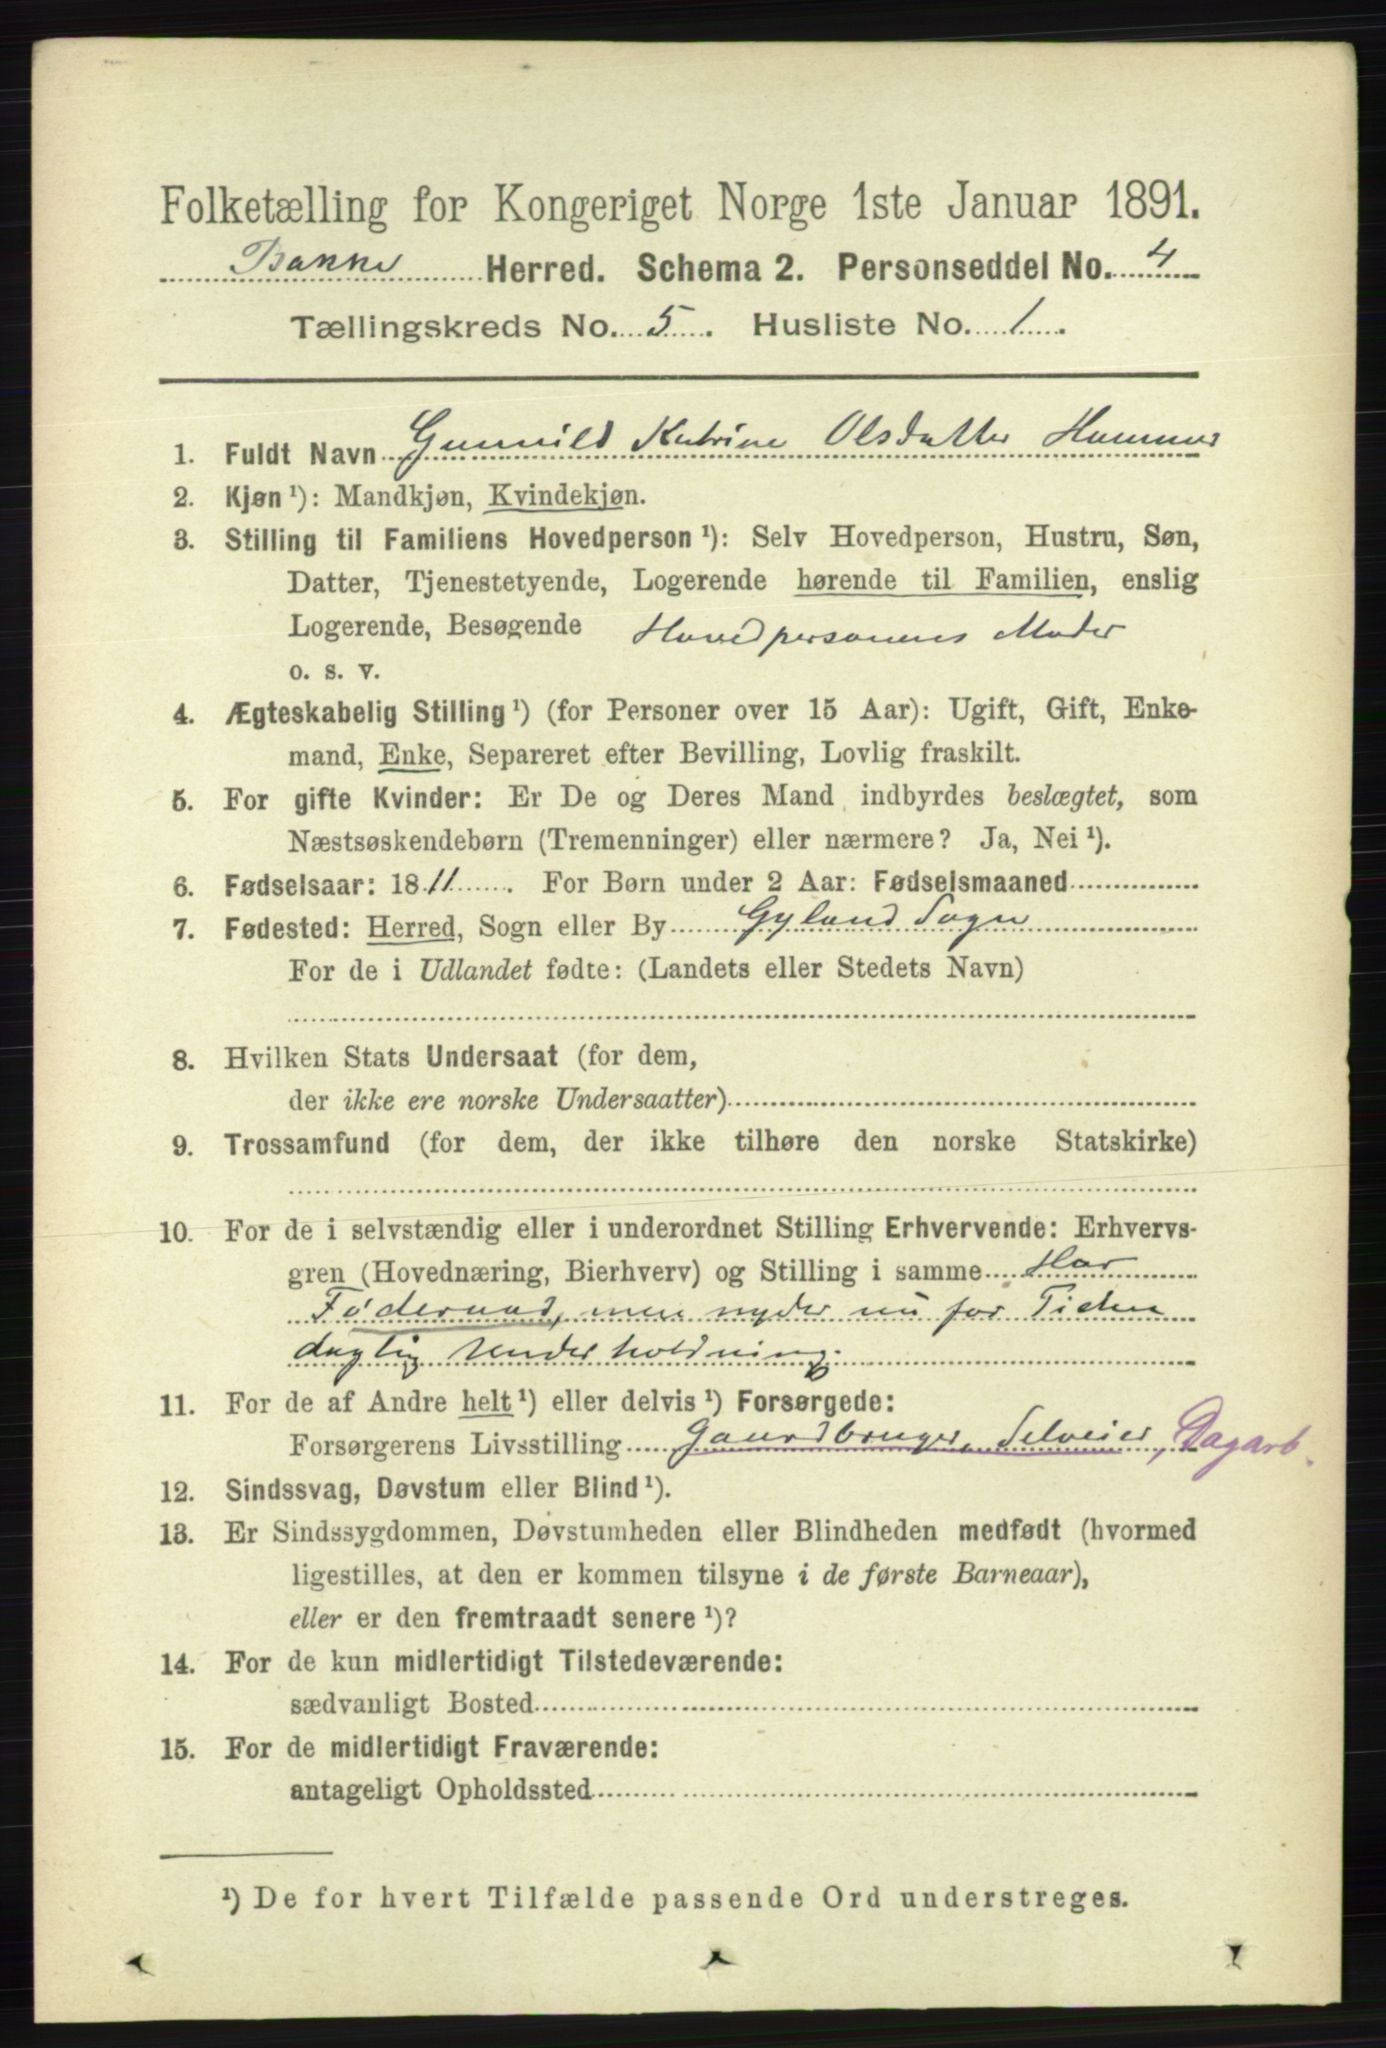 Folketælling for Kongeriget Norge 1ste Januar 1891.
Bakke Herred. Schema 2. Personseddel No. 4
Tællingskreds No. 5. Husliste No. 1.
1. Fuldt Navn Gunnild Katrine Olsdatter Hammer
2. Kjøn ¹): Mandkjøn, Kvindekjøn.
3. Stilling til Familiens Hovedperson ¹): Selv Hovedperson, Hustru, Søn,
Datter, Tjenestetyende, Logerende hørende til Familien, enslig
Logerende, Besøgende Hovedpersonens Moder
o. s. v.
4. Ægteskabelig Stilling ¹) (for Personer over 15 Aar): Ugift, Gift, Enke-
mand, Enke, Separeret efter Bevilling, Lovlig fraskilt.
5. For gifte Kvinder: Er De og Deres Mand indbyrdes beslægtet, som
Næstsøskendebørn (Tremenninger) eller nærmere? Ja, Nei ¹).
6. Fødselsaar: 1811. For Børn under 2 Aar: Fødselsmaaned
7. Fødested: Herred, Sogn eller By Gyland Sogn
For de i Udlandet fødte: (Landets eller Stedets Navn)
8. Hvilken Stats Undersaat (for dem,
der ikke ere norske Undersaatter)
9. Trossamfund (for dem, der ikke tilhøre den norske Statskirke)
10. For de i selvstændig eller i underordnet Stilling Erhvervende: Erhvervs-
gren (Hovednæring, Bierhverv) og Stilling i samme Har
Føderaad, men nyder nu for Tiden
daglig Underholdning.
11. For de af Andre helt ¹) eller delvis ¹) Forsørgede:
Forsørgerens Livsstilling Gaardbruger, Selveier, Dagarb.
12. Sindssvag, Døvstum eller Blind ¹).
13. Er Sindssygdommen, Døvstumheden eller Blindheden medfødt (hvormed
ligestilles, at den er kommen tilsyne i de første Barneaar),
eller er den fremtraadt senere ¹)?
14. For de kun midlertidigt Tilstedeværende:
sædvanligt Bosted
15. For de midlertidigt Fraværende:
antageligt Opholdssted
¹) De for hvert Tilfælde passende Ord understreges.